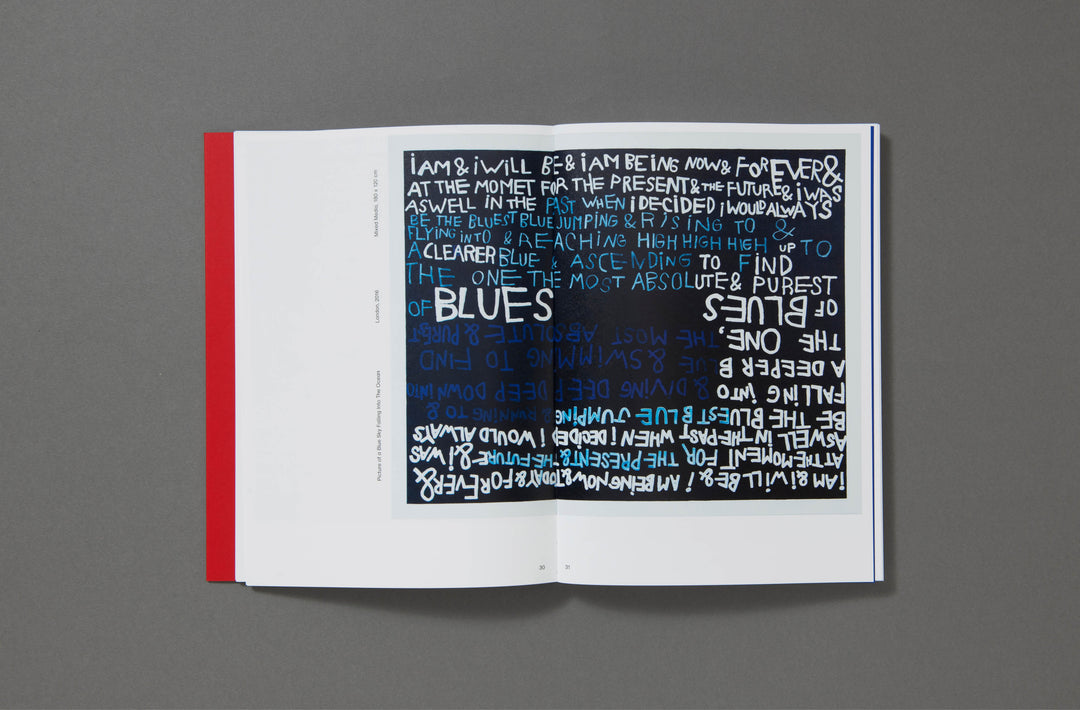 Mixed Media, 180 x 120 cm
London, 2016
Picture of a Blue Sky Falling Into The Ocean
i AM & i WiLL BE & i AM BEiNG NOW & FOREVER &
AT THE MOMET FOR THE PRESENT & THE FUTURE & i WAS
ASWELL IN THE PAST WHEN i DECiDED i WOULD ALWAYS
BE THE BLUEST BLUE JUMPING & RiSiNG TO &
FLYiNG iNTO & REACHiNG HIGH HIGH HIGH UP TO
A CLEARER BLUE & ASCENDiNG TO FiND
THE ONE THE MOST ABSOLUTE & PUREST
OF BLUES
i AM & i WiLL BE & i AM BEiNG NOW & TODAY & FOREVER &
AT THE MOMENT FOR THE PRESENT & THE FUTURE & i WAS
ASWELL iN THE PAST WHEN i DECiDED i WOULD ALWAYS
BE THE BLUEST BLUE JUMPiNG & RUNNiNG TO &
FALLiNG iNTO & DiViNG DEEP DEEP DOWN iNTO
A DEEPER BLUE & SWiMMiNG TO FiND
THE ONE, THE MOST ABSOLUTE & PUREST
OF BLUES
30 31